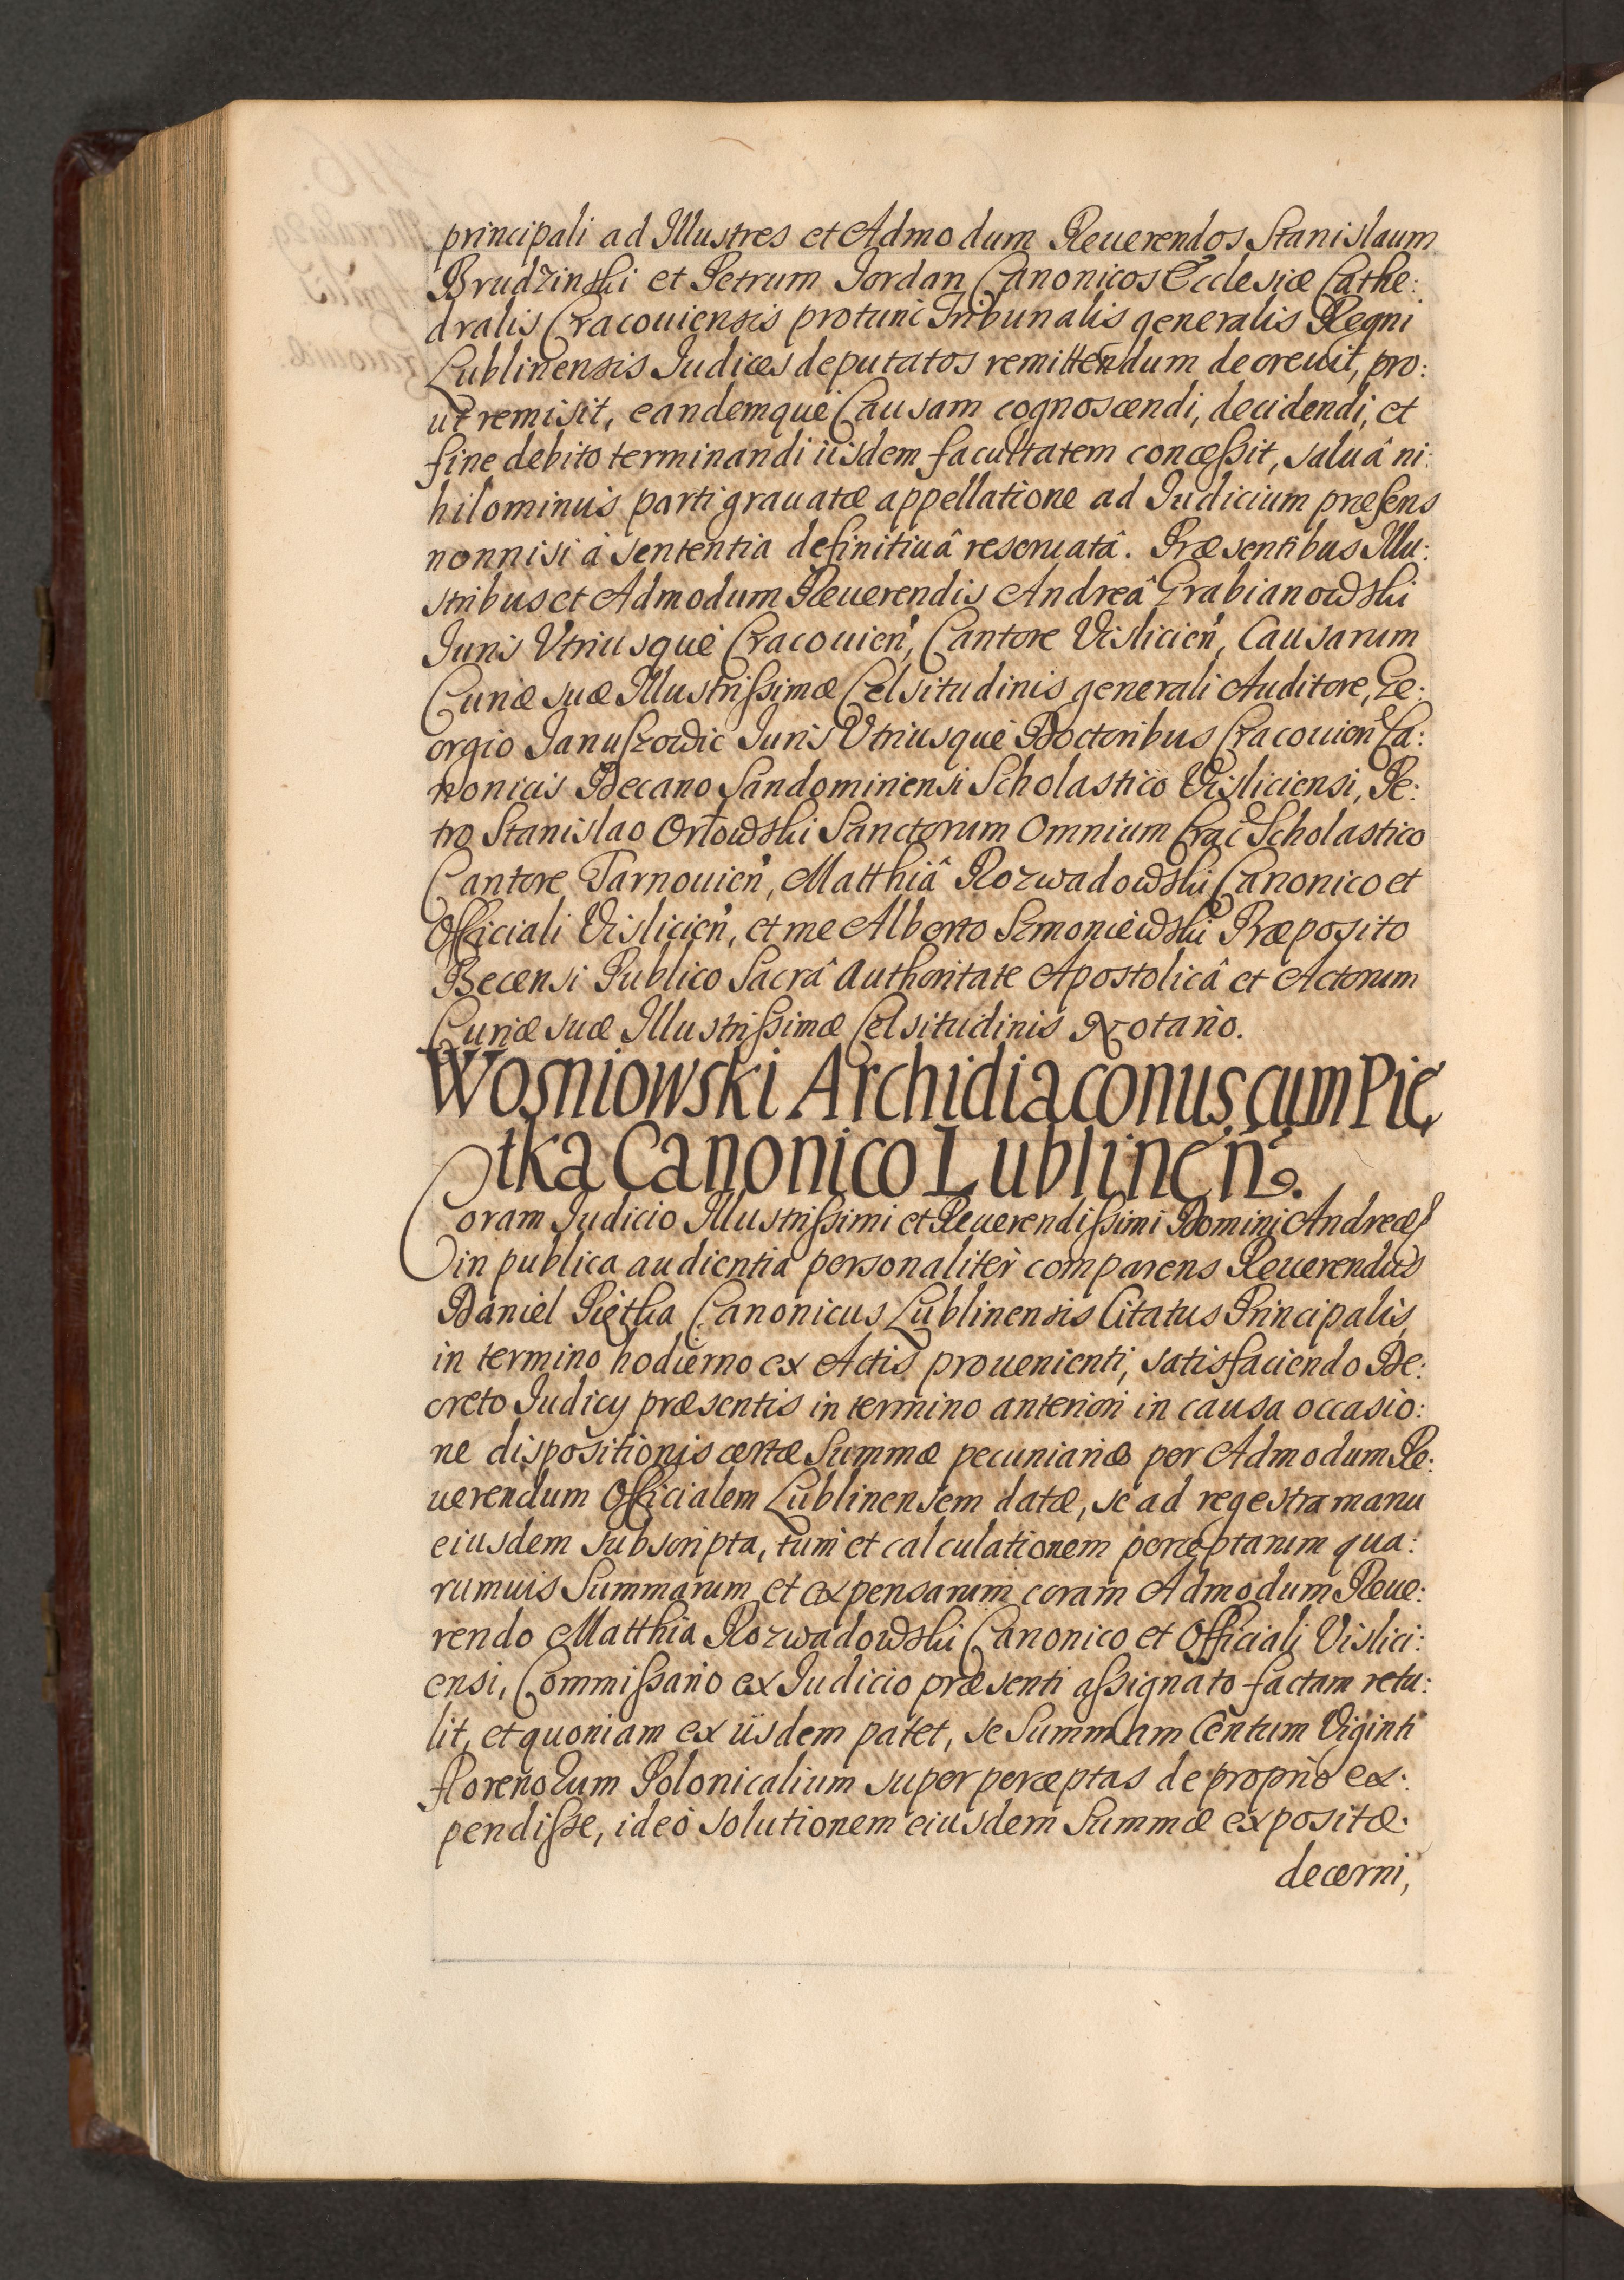 principali ad Illustres et Admodum Reuerendos Stanislaum
Brudzinski et Petrum Iordan Canonicos Ecclesiæ Cathe:
dralis Cracouiensis protunc Tribunalis generalis Regni
Lublinensis Iudices deputatos remittendum decreuit, pro:
ut remisit, eandemque Causam cognoscendi, decidendi, et
fine debito terminandi iisdem facultatem concessit, saluâ ni:
hilominus parti grauatæ appellatione ad Iudicium præsens
nonnisi à sententia definitiuâ reseruatâ. Præsentibus Illu:
stribus et Admodum Reuerendis Andreâ Grabianowski
Iuris Vtriusque Cracouien, Cantore Visliciен, Causarum
Curiæ suæ Illustrissimæ Celsitudinis generali Auditore, Ge:
orgio Januszowic Iuris Vtriusque Doctoribus Cracouien Ca:
nonicis Decano Sandomiriensi Scholastico Visliciensi, Pe:
tro Stanislao Orłowski Sanctorum Omnium Crac Scholastico
Cantore Tarnouien, Matthiâ Rozwadowski Canonico et
Officiali Vislicien, et me Alberto Szmoniewski Præposito
Becensi Publico Sacrâ Authoritate Apostolicâ et Actorum
Curiæ suæ Illustrissimæ Celsitudinis Notario.
Wosniowski Archidiaconus cum Pię
tka Canonico Lublinen.
Coram Iudicio Illustrissimi et Reuerendissimi Domini Andreæ
in publica audientia personaliter comparens Reuerendus
Daniel Piętka Canonicus Lublinensis Citatus Principalis,
in termino hodierno ex Actis prouenienti, satisfaciendo De:
creto Iudicy præsentis in termino anteriori in causa occasio:
ne dispositionis certæ Summæ pecuniariæ per Admodum Re:
uerendum Officialem Lublinensem datæ, se ad regestra manu
eiusdem subscripta, tum et calculationem perceptarum qua:
rumuis Summarum et expensarum coram Admodum Reue:
rendo Matthia Rozwadowski Canonico et Officiali Vislici:
ensi, Commissario ex Iudicio præsenti assignato factam retu:
lit, et quoniam ex iisdem patet, se Summam Centum Viginti
florenorum Polonicalium super perceptas de proprio ex:
pendisse, ideò solutionem eiusdem Summæ expositæ
decerni,